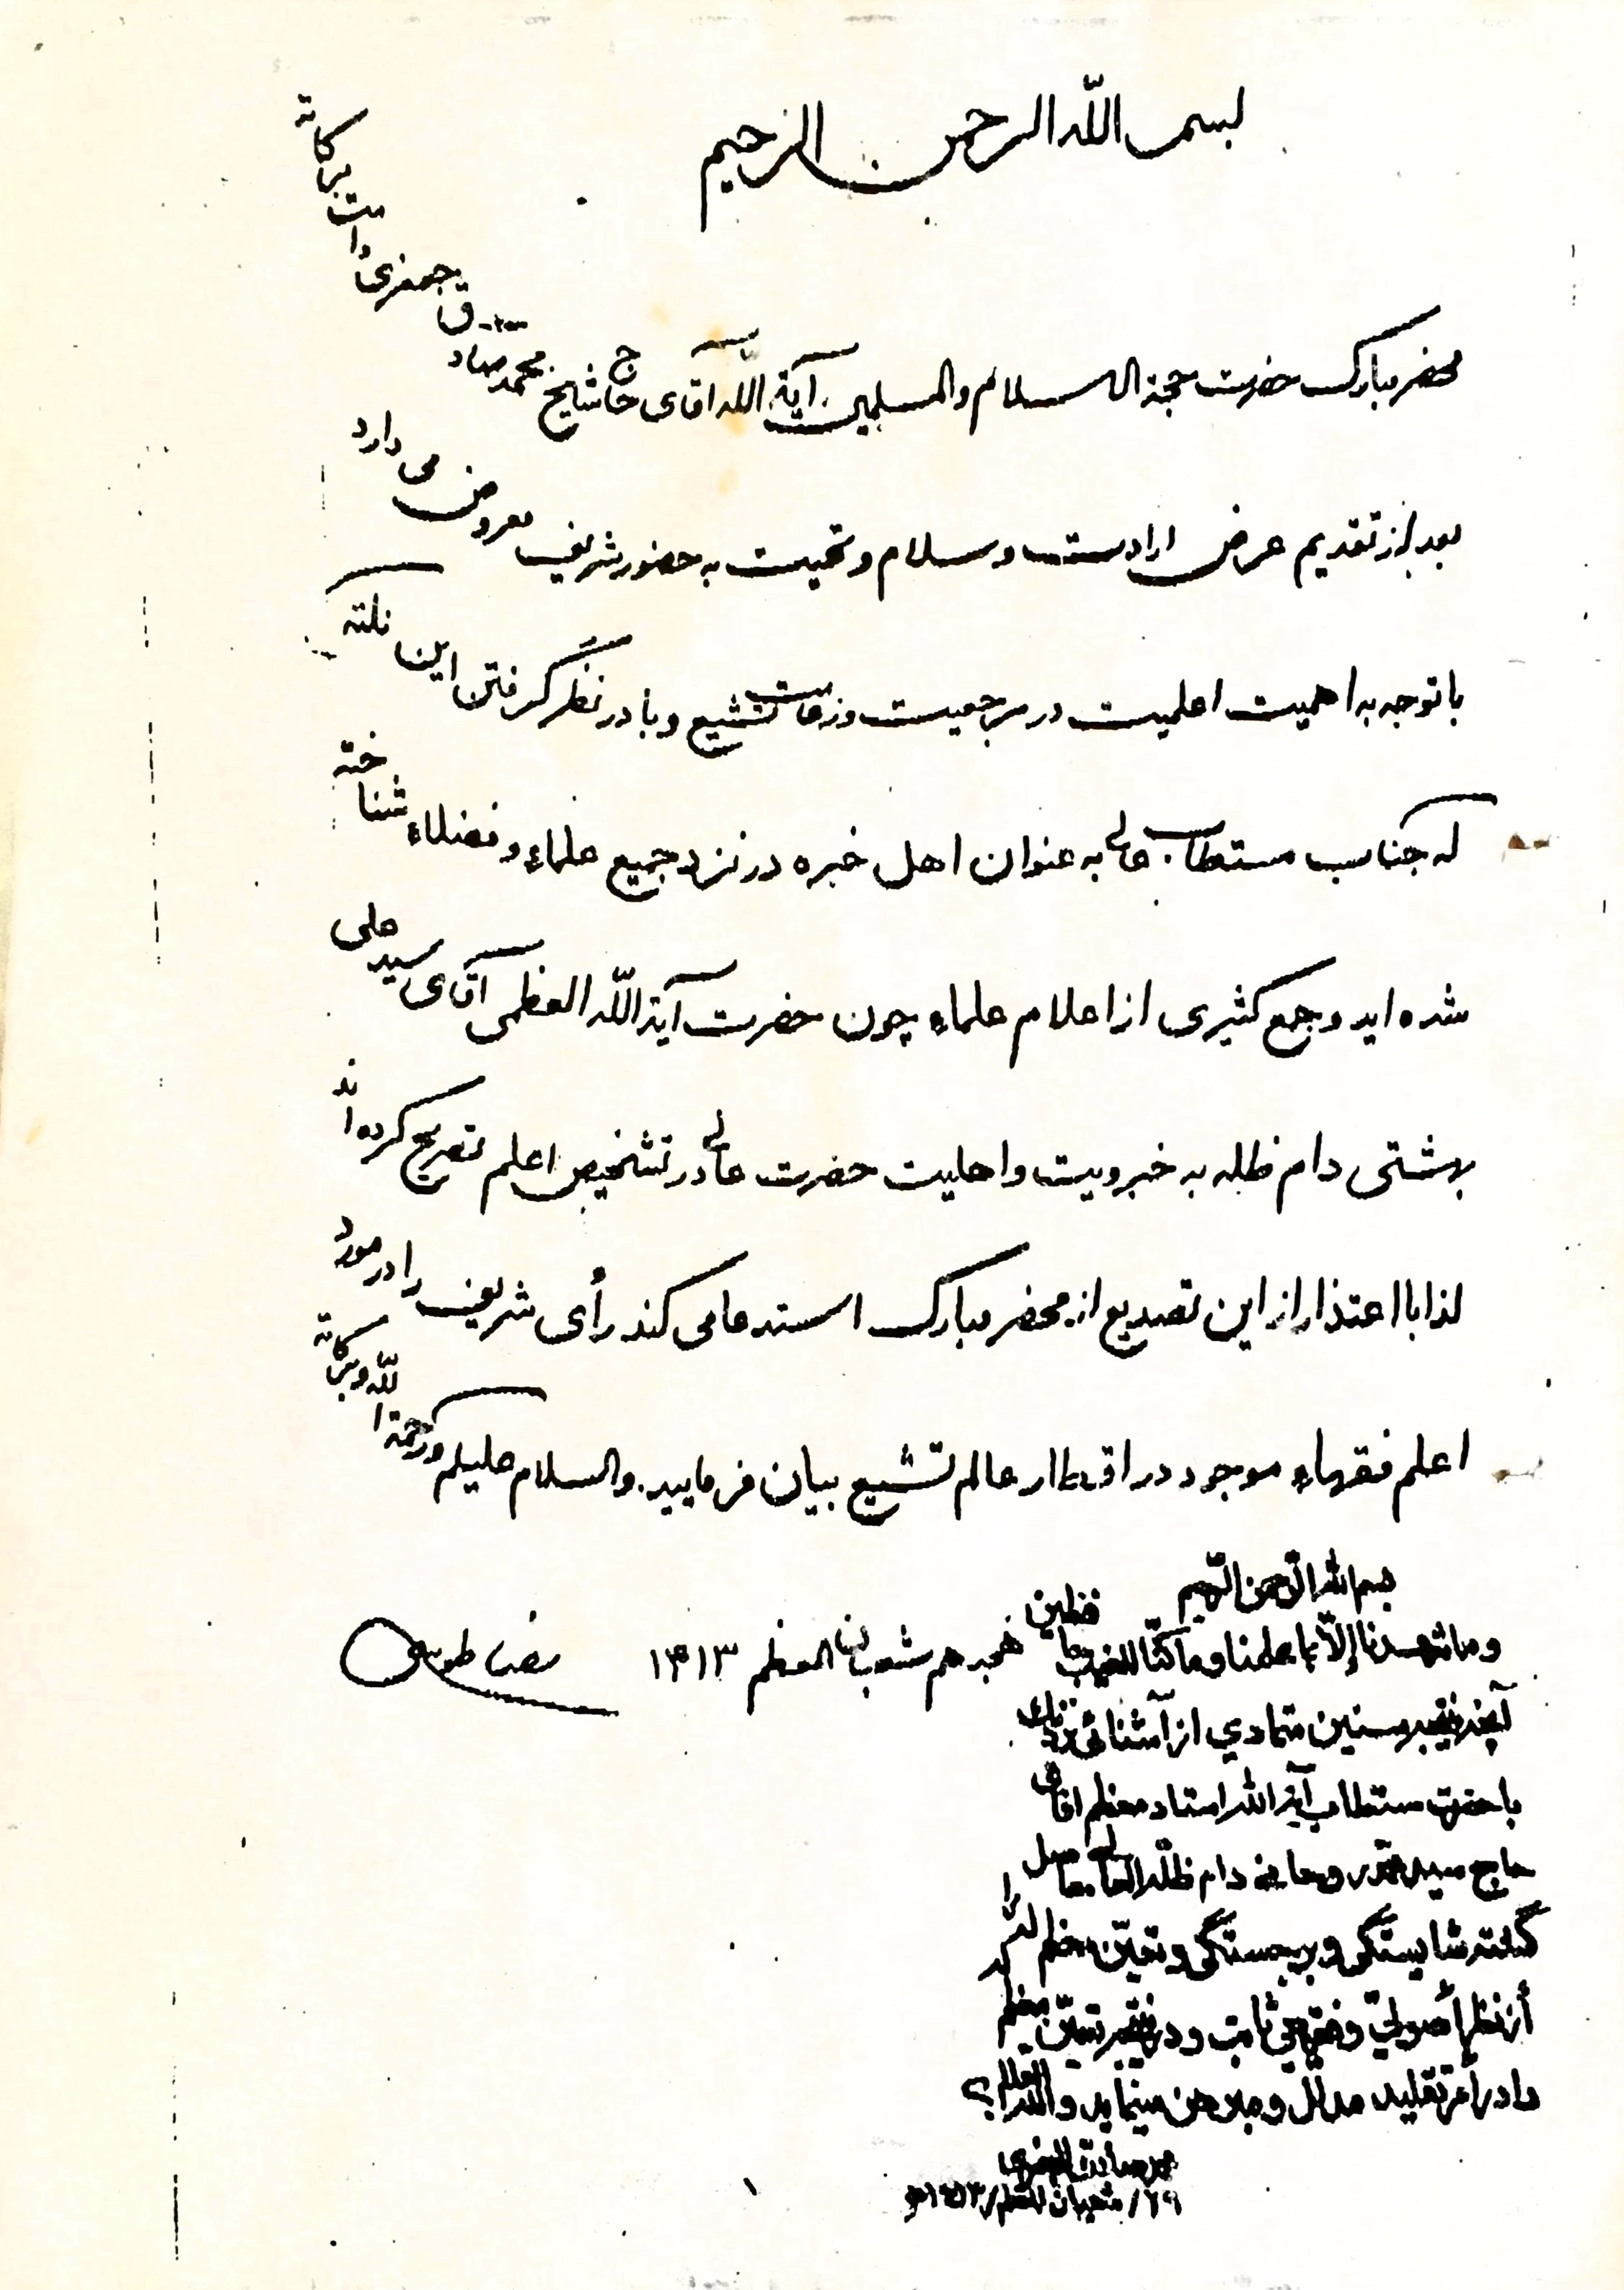 بسم الله الرحمن الرحیم
محضر مبارک حضرت حجة الاسلام والمسلمین آیة الله آقای حاج شیخ محمد صادق جعفری دامت برکاته
بعد از تقدیم عرض ارادت و سلام و تحیت به حضور شریف معروض می دارد
با توجه به اهمیت اعلمیت در مرجعیت و زعامت تشیع و با در نظر گرفتن این نکته
که جناب مستطاب عالی به عنوان اهل خبره در نزد جمیع علماء و فضلاء شناخته
شده اید و جمع کثیری از اعلام علماء چون حضرت آیة الله العظمی آقای سید علی
بهشتی دام ظله به خبرویت و اهلیت حضرت عالی در تشخیص اعلم تصریح کرده اند
لذا با اعتذار از این تصدیع از محضر مبارک استدعا می کند رأی شریف را در مورد
اعلم فقهاء موجود در اقطار عالم تشیع بیان فرمایید. والسلام علیکم ورحمة الله وبرکاته
هجدهم شعبان المعظم ۱۴۱۳
بسم الله الرحمن الرحیم
وما شهدنا إلا بما علمنا وما کنّا للغیب حافظین
آنچه سنین متمادي از آشنائی نزدیک
با حضرت مستطاب آیة الله استاد معظم اقای
حاج سید محمد روحانی دام ظلّه العالی حاصل
گشته شایستگی و برجستگی و تعیّن معظم له را
أز نظر أصولیّ و فقهيّ ثابت و در نتیجه تعیّن معظم له
را در أمر تقلید مدلل و مبرهن مینماید والله العالم
محمد صادق الجعفری
۲۹/ شعبان المعظم/ ۱۴۱۳ه
۱